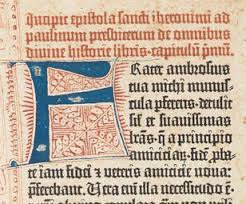 Incipit epistola sancti iheronimi ad
paulinum presbiterum de omnibus
divine historie libris. capitulũ pͥmũ.
Frater ambrosius
tua michi munus-
cula ꝑferens. detulit
sil̃ et suavissimas
lr̃as. q̃ a principio
amiciciaꝝ. fidẽ
te iam fidei ⁊ veteris amicicie nova:
ꝑferebant. Vera eni illa necessitudo ẽ.